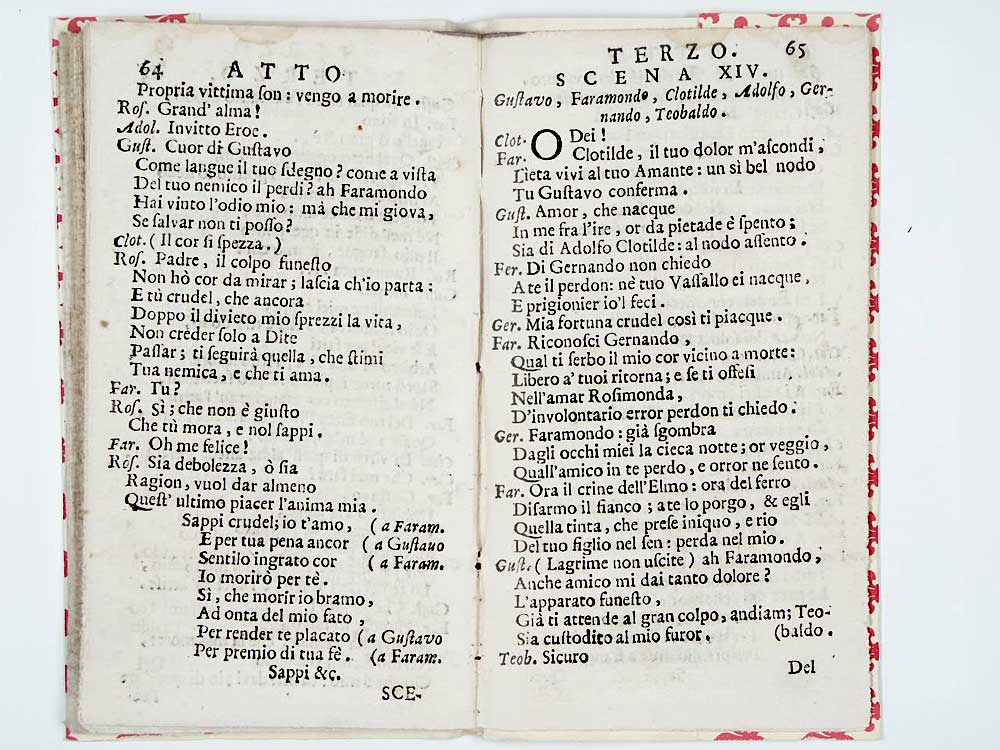 64 ATTO
Propria vittima son: vengo a morire.
Roſ. Grand' alma!
Adol. Invitto Eroe.
Guſt. Cuor di Guſtavo
Come langue il tuo ſdegno? come a viſta
Del tuo nemico il perdi? ah Faramondo
Hai vinto l'odio mio: mà che mi giova,
Se ſalvar non ti poſſo?
Clot. (Il cor ſi ſpezza.)
Roſ. Padre, il colpo funeſto
Non hò cor da mirar; laſcia ch'io parta:
E tù crudel, che ancora
Doppo il divieto mio ſprezzi la vita,
Non creder ſolo a Dite
Paſſar; ti ſeguirà quella, che ſtimi
Tua nemica, e che ti ama.
Far. Tu?
Roſ. Sì; che non è giuſto
Che tù mora, e nol ſappi.
Far. Oh me felice!
Roſ. Sia debolezza, ò ſia
Ragion, vuol dar almeno
Queſt' ultimo piacer l'anima mia.
Sappi crudel; io t'amo, (a Faram.
E per tua pena ancor (a Guſtauo
Sentilo ingrato cor (a Faram.
Io morirò per tè.
Sì, che morir io bramo,
Ad onta del mio fato,
Per render te placato (a Guſtavo
Per premio di tua fè. (a Faram.
Sappi &c.
SCE-
TERZO. 65
SCENA XIV.
Guſtavo, Faramondo, Clotilde, Adolfo, Ger-
nando, Teobaldo.
Clot. O Dei!
Far. Clotilde, il tuo dolor m'aſcondi,
Lieta vivi al tuo Amante: un sì bel nodo
Tu Guſtavo conferma.
Guſt. Amor, che nacque
In me fra l'ire, or da pietade è ſpento;
Sia di Adolfo Clotilde: al nodo aſſento.
Fer. Di Gernando non chiedo
A te il perdon: nè tuo Vaſſallo ei nacque,
E prigionier io'l feci.
Ger. Mia fortuna crudel così ti piacque.
Far. Riconoſci Gernando,
Qual ti ſerbo il mio cor vicino a morte:
Libero a' tuoi ritorna; e ſe ti offeſi
Nell'amar Roſimonda,
D'involontario error perdon ti chiedo.
Ger. Faramondo: già ſgombra
Dagli occhi miei la cieca notte; or veggio,
Quall'amico in te perdo, e orror ne ſento.
Far. Ora il crine dell'Elmo: ora del ferro
Diſarmo il fianco; a te lo porgo, & egli
Quella tinta, che preſe iniquo, e rio
Del tuo figlio nel ſen: perda nel mio.
Guſt. (Lagrime non uſcite) ah Faramondo,
Anche amico mi dai tanto dolore?
L'apparato funeſto,
Già ti attende al gran colpo, andiam; Teo-
Sia cuſtodito al mio furor. (baldo.
Teob. Sicuro
Del